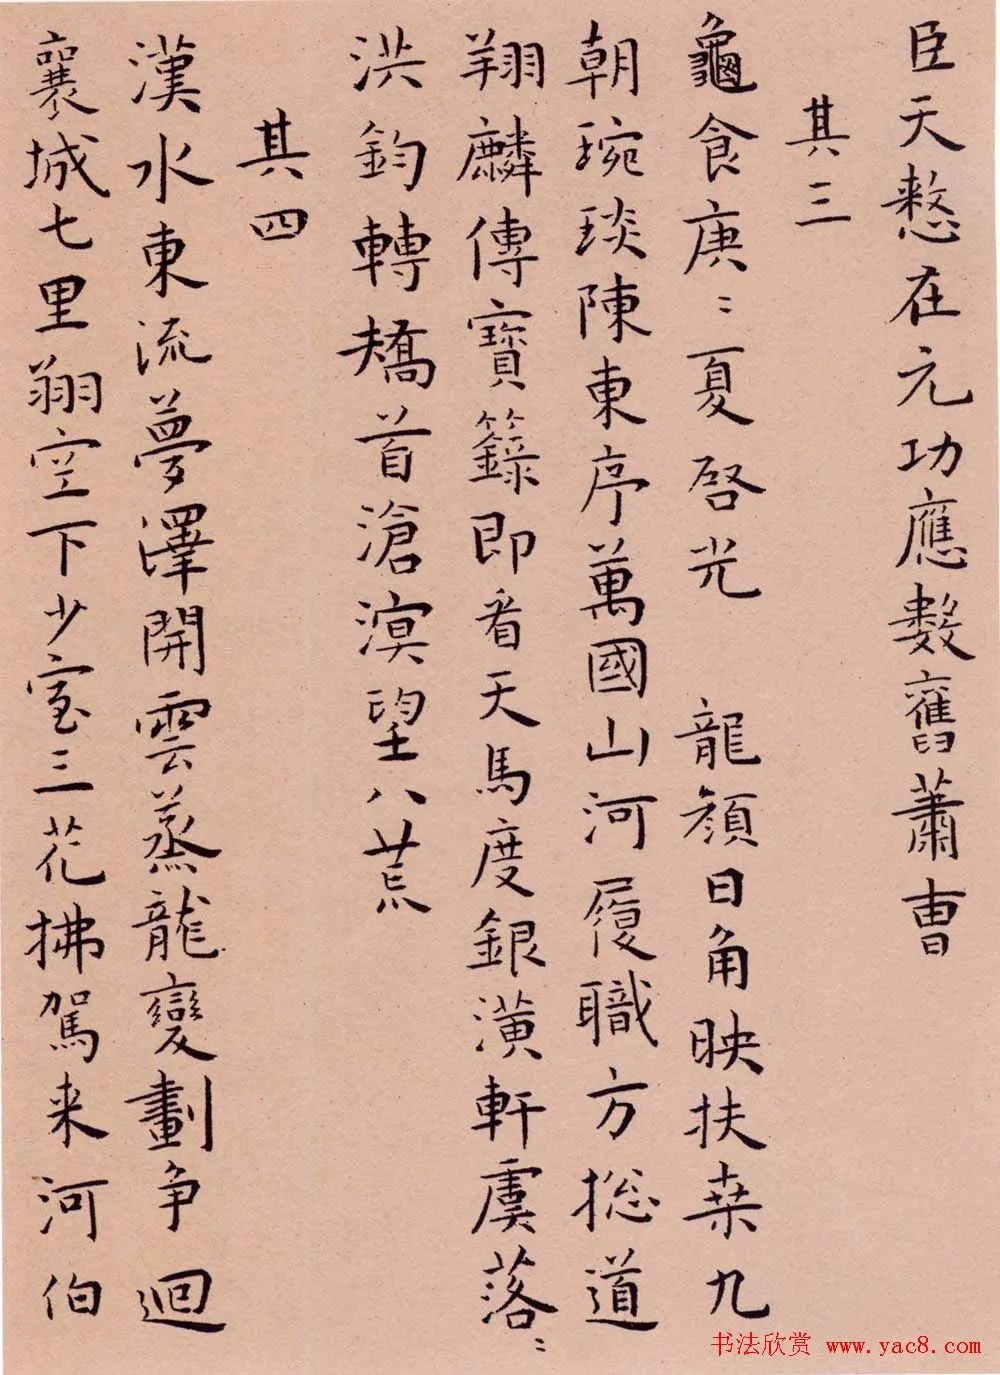 臣天憗在元功應數舊蕭曹
其三
龜食庚〻夏啓光 龍顏日角映扶桒九
朝琬琰陳東序萬國山河履職方揔道
翔麟傳寶籙即看天馬度銀潢軒虞落〻
洪鈞轉矯首滄溟望八荒
其四
漢水東流夢澤開雲蒸龍變劃争迴
襄城七里翔空下少室三花拂駕来河伯
书法欣赏 www.yac8.com